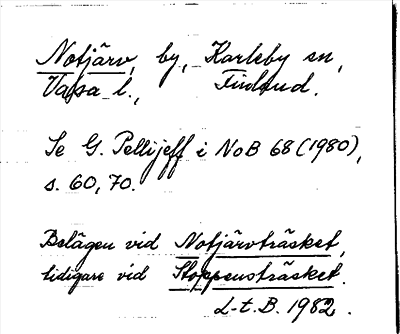 Notjärv, by, Karleby sn,
Vasa l., Finland.
Se G. Pellijeff i NoB 68 (1980),
s. 60, 70.
Belägen vid Notjärvträsket,
tidigare vid Stoppensträsket.
L-t. B. 1982.